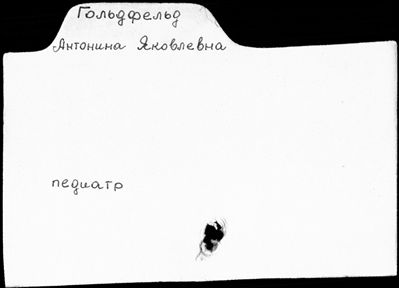 Гольдфельд
Антонина Яковлевна
педиатр